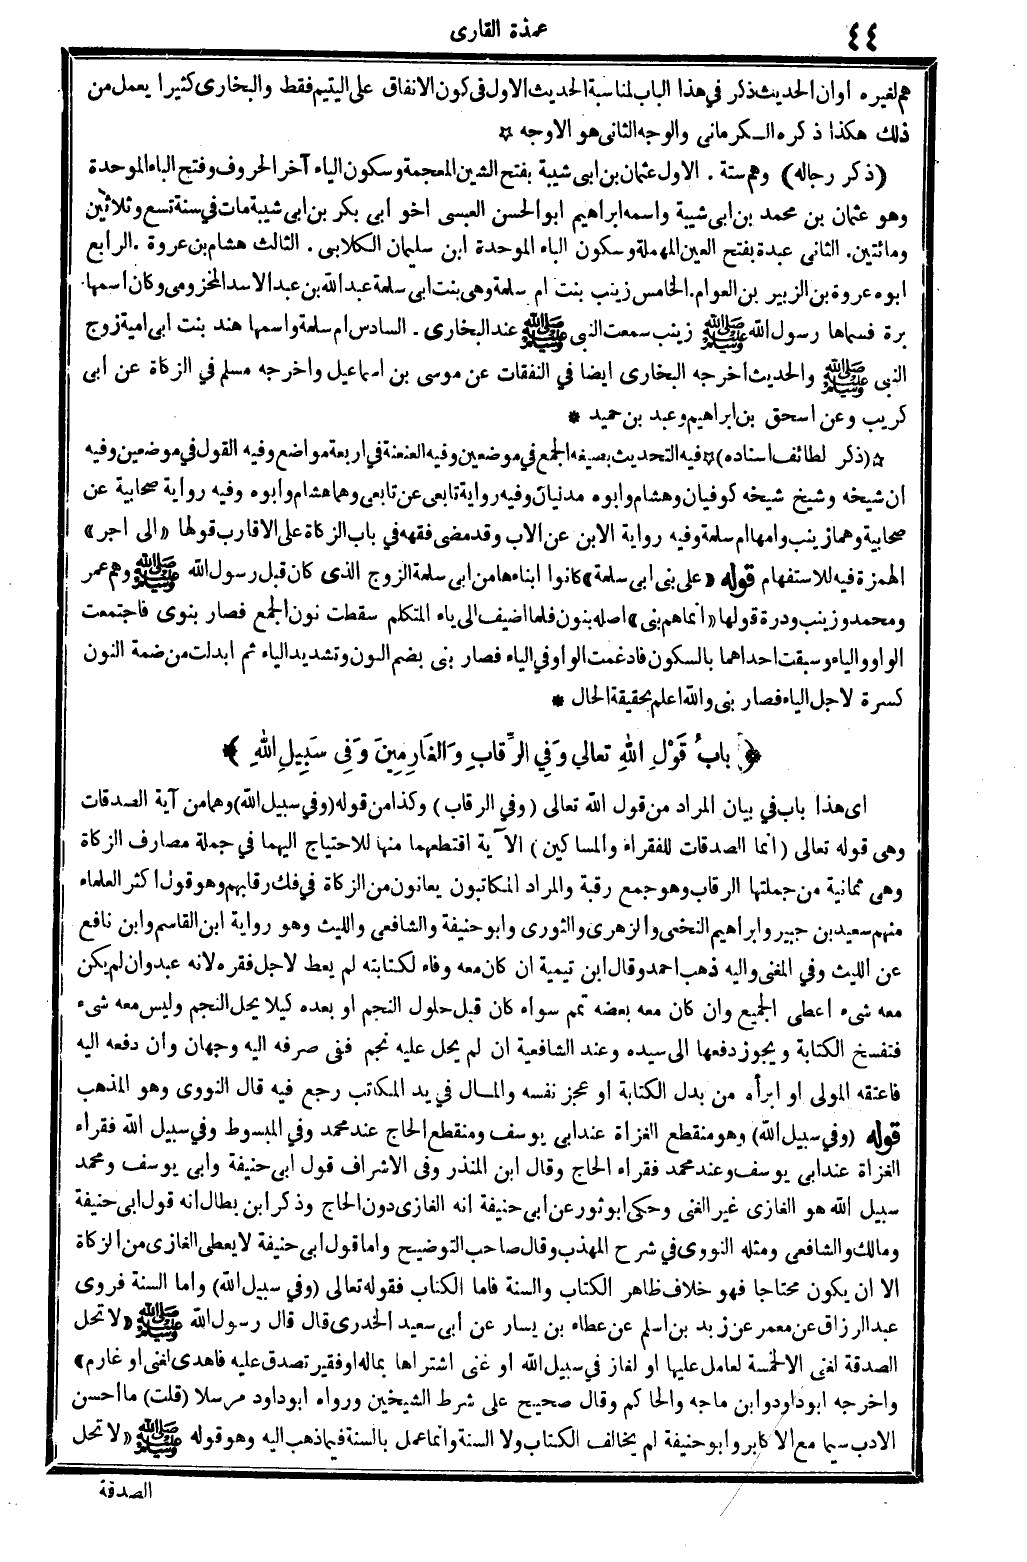 ٤٤
عمدة القارى
هم لغيره او ان الحديث ذكر في هذا الباب لمناسبة الحديث الاول فى كون الانفاق على اليتيم فقط والبخارى كثيرا يعمل من
ذلك هكذا ذكره الكرمانى والوجه الثانى هو الاوجه ☆
(ذكر رجاله) وهم ستة . الاول عثمان بن ابى شيبة بفتح الشين المعجمة وسكون الياء آخر الحروف وفتح الباء الموحدة
وهو عثمان بن محمد بن ابى شيبة واسمه ابراهيم ابو الحسن العبسى اخو ابى بكر بن ابى شيبة مات في سنة تسع وثلاثين
ومائتين. الثانى عبدة بفتح العين المهملة وسكون الباء الموحدة ابن سليمان الكلابى . الثالث هشام بن عروة .الرابع
ابوه عروة بن الزبير بن العوام. الخامس زينب بنت ام سلمة وهى بنت ابى سلمة عبد الله بن عبد الاسد المخزومى وكان اسمها
برة فسماها رسول الله ﷺ زينب سمعت النبى ﷺ عند البخارى . السادس ام سلمة واسمها هند بنت ابى امية زوج
النبى ﷺ والحديث اخرجه البخارى ايضا في النفقات عن موسى بن اسماعيل واخرجه مسلم في الزكاة عن أبى
كريب وعن اسحق بن ابراهيم وعبد بن حميد *
☆(ذكر لطائف اسناده)☆ فيه التحديث بصيغة الجمع في موضعين وفيه العنعنة في اربعة مواضع وفيه القول في موضعين وفيه
ان شيخه وشيخ شيخه كوفيان وهشام وابوه مدنيان وفيه رواية تابعى عن تابعى وهما هشام وابوه وفيه رواية صحابية عن
صحابية وهما زينب وامها ام سلمة وفيه رواية الابن عن الاب وقد مضى فقهه في باب الزكاة على الاقارب قولها «الى اجر»
الهمزة فيه للاستفهام قوله «على بنى ابى سلمة» كانوا ابناءها من ابى سلمة الزوج الذى كان قبل رسول الله ﷺ وهم عمر
ومحمد وزينب ودرة قولها «انما هم بنى» اصله بنون فلما اضيف الى ياء المتكلم سقطت نون الجمع فصار بنوى فاجتمعت
الواو والياء وسبقت احداهما بالسكون فادغمت الواو في الياء فصار بنى بضم النون وتشديد الياء ثم ابدلت من ضمة النون
كسرة لاجل الياء فصار بنى والله اعلم بحقيقة الحال *
﴿ بابُ قَوْلِ اللهِ تعالي وَفِي الرِّقابِ وَالغَارِمِينَ وَفِى سَبِيلِ اللهِ ﴾
اى هذا باب في بيان المراد من قول الله تعالى (وفي الرقاب) وكذا من قوله (وفى سبيل الله) وهما من آية الصدقات
وهى قوله تعالى (انما الصدقات للفقراء والمساكين) الآية اقتطعهما منها للاحتياج اليهما في جملة مصارف الزكاة
وهى ثمانية من جملتها الرقاب وهو جمع رقبة والمراد المكاتبون يعانون من الزكاة في فك رقابهم وهو قول اكثر العلماء
منهم سعيد بن جبير وابراهيم النخعى والزهرى والثورى وابو حنيفة والشافعى والليث وهو رواية ابن القاسم وابن نافع
عن الليث وفي المغنى واليه ذهب احمد وقال ابن تيمية ان كان معه وفاء لكتابته لم يعط لاجل فقره لانه عبد وان لم يكن
معه شىء اعطى الجميع وان كان معه بعضه تمم سواء كان قبل حلول النجم او بعده كيلا يحل النجم وليس معه شىء
فتفسخ الكتابة ويجوز دفعها الى سيده وعند الشافعية ان لم يحل عليه نجم ففى صرفه اليه وجهان وأن دفعه اليه
فاعتقه المولى او ابرأه من بدل الكتابة او عجز نفسه والمال في يد المكاتب رجع فيه قال النووى وهو المذهب
قوله (وفي سبيل الله) وهو منقطع الغزاة عند ابى يوسف ومنقطع الحاج عند محمد وفي المبسوط وفي سبيل الله فقراء
الغزاة عند ابى يوسف وعند محمد فقراء الحاج وقال ابن المنذر وفى الاشراف قول ابى حنيفة وابى يوسف ومحمد
سبيل الله هو الغازى غير الغنى وحكى ابو ثور عن أبى حنيفة انه الغازى دون الحاج وذكر ابن بطال انه قول ابى حنيفة
ومالك والشافعى ومثله النووى في شرح المهذب وقال صاحب التوضيح واما قول ابى حنيفة لا يعطى الغازى من الزكاة
الا ان يكون محتاجا فهو خلاف ظاهر الكتاب والسنة فاما الكتاب فقوله تعالى (وفي سبيل الله) وأما السنة فروى
عبد الرزاق عن معمر عن زيد بن اسلم عن عطاء بن يسار عن أبى سعيد الخدرى قال قال رسول الله ﷺ «لا تحل
الصدقة لغنى الا لخمسة لعامل عليها او لغاز في سبيل الله او غنى اشتراها بماله او فقير تصدق عليه فاهدى لغنى او غارم»
واخرجه ابو داود وابن ماجه والحاكم وقال صحيح على شرط الشيخين ورواه ابو داود مرسلا (قلت) ما احسن
الادب سيما مع الاكابر وابو حنيفة لم يخالف الكتاب ولا السنة وانما عمل بالسنة فيما ذهب اليه وهو قوله ﷺ «لا تحل
الصدقة